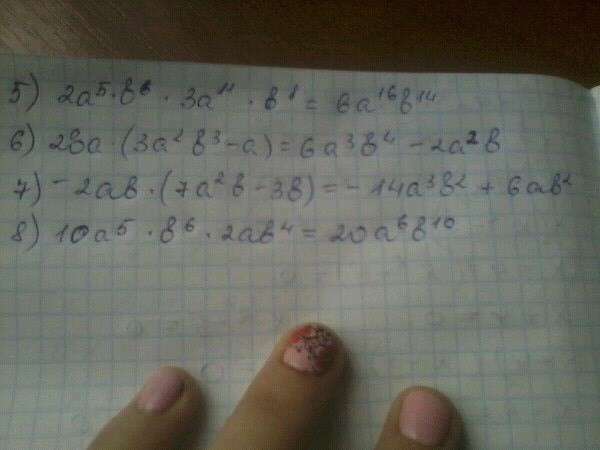 5) 2a⁵·b⁶ · 3a¹¹ · b⁸ = 6a¹⁶b¹⁴
6) 2ba · (3a²b³ - a) = 6a³b⁴ - 2a²b
7) -2ab · (7a²b - 3b) = -14a³b² + 6ab²
8) 10a⁵ · b⁶ · 2ab⁴ = 20a⁶b¹⁰